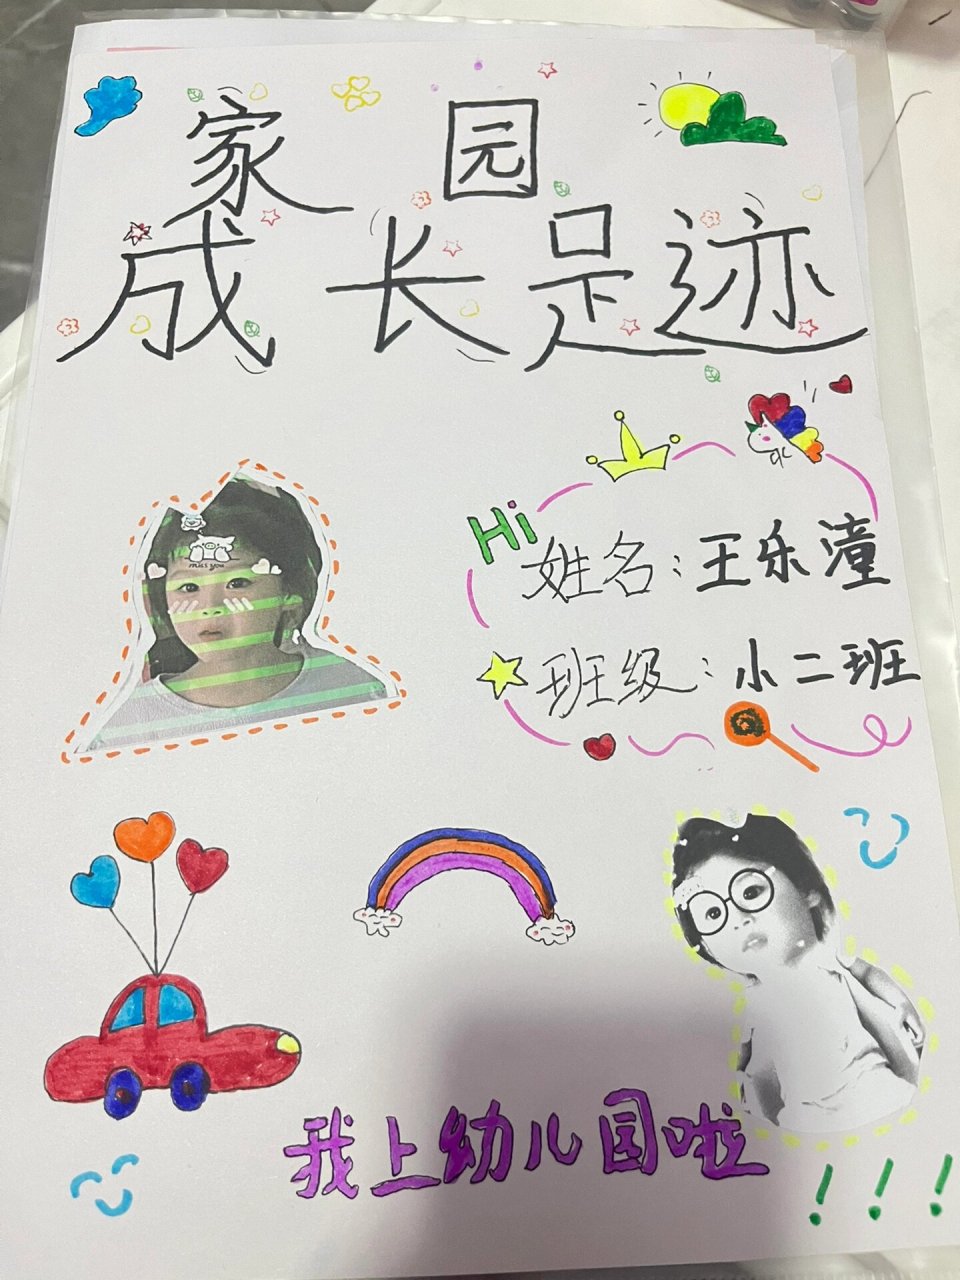 家 园
成长足迹
Hi
姓名：王乐潼
班级：小二班
miss you
我上幼儿园啦
!!!